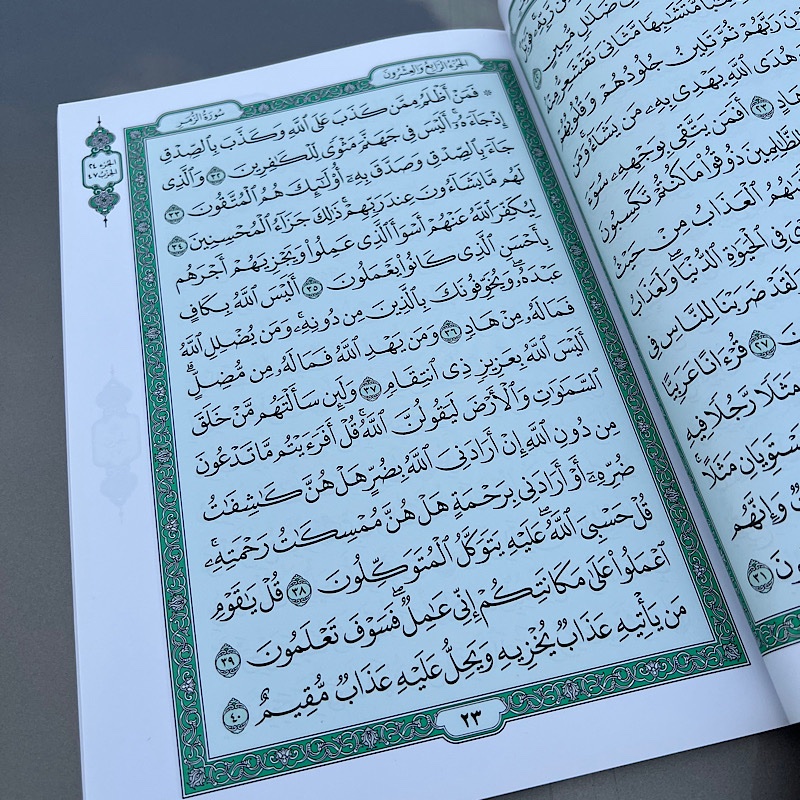 ضَلَٰلٍ مُّبِينٍ
مُّتَشَٰبِهًا مَّثَانِيَ تَقْشَعِرُّ مِنْهُ
رَبَّهُمْ ثُمَّ تَلِينُ جُلُودُهُمْ وَقُلُوبُهُمْ
هُدَى ٱللَّهِ يَهْدِى بِهِۦ مَن يَشَآءُ وَمَن
هَادٍ ٢٣ أَفَمَن يَتَّقِى بِوَجْهِهِۦ سُوٓءَ
لِلظَّٰلِمِينَ ذُوقُوا۟ مَا كُنتُمْ تَكْسِبُونَ
ٱلْعَذَابُ مِنْ حَيْثُ
فِى ٱلْحَيَوٰةِ ٱلدُّنْيَا ۖ وَلَعَذَابُ
وَلَقَدْ ضَرَبْنَا لِلنَّاسِ فِى
٢٧ قُرْءَانًا عَرَبِيًّا
مَثَلًا رَّجُلًا فِيهِ
يَسْتَوِيَانِ مَثَلًا ۚ
وَإِنَّهُم
٣١
الجُزْءُ الرَّابِعُ وَالعِشْرُونَ
سُورَةُ الزُّمَرِ
الجزء ٢٤
الحزب ٤٧
۞ فَمَنْ أَظْلَمُ مِمَّن كَذَبَ عَلَى ٱللَّهِ وَكَذَّبَ بِٱلصِّدْقِ
إِذْ جَآءَهُۥٓ ۚ أَلَيْسَ فِى جَهَنَّمَ مَثْوًى لِّلْكَٰفِرِينَ ٣٢ وَٱلَّذِى
جَآءَ بِٱلصِّدْقِ وَصَدَّقَ بِهِۦٓ ۙ أُو۟لَٰٓئِكَ هُمُ ٱلْمُتَّقُونَ ٣٣
لَهُم مَّا يَشَآءُونَ عِندَ رَبِّهِمْ ۚ ذَٰلِكَ جَزَآءُ ٱلْمُحْسِنِينَ ٣٤
لِيُكَفِّرَ ٱللَّهُ عَنْهُمْ أَسْوَأَ ٱلَّذِى عَمِلُوا۟ وَيَجْزِيَهُمْ أَجْرَهُم
بِأَحْسَنِ ٱلَّذِى كَانُوا۟ يَعْمَلُونَ ٣٥ أَلَيْسَ ٱللَّهُ بِكَافٍ
عَبْدَهُۥ ۖ وَيُخَوِّفُونَكَ بِٱلَّذِينَ مِن دُونِهِۦ ۚ وَمَن يُضْلِلِ ٱللَّهُ
فَمَا لَهُۥ مِنْ هَادٍ ٣٦ وَمَن يَهْدِ ٱللَّهُ فَمَا لَهُۥ مِن مُّضِلٍّ ۗ
أَلَيْسَ ٱللَّهُ بِعَزِيزٍ ذِى ٱنتِقَامٍ ٣٧ وَلَئِن سَأَلْتَهُم مَّنْ خَلَقَ
ٱلسَّمَٰوَٰتِ وَٱلْأَرْضَ لَيَقُولُنَّ ٱللَّهُ ۚ قُلْ أَفَرَءَيْتُم مَّا تَدْعُونَ
مِن دُونِ ٱللَّهِ إِنْ أَرَادَنِىَ ٱللَّهُ بِضُرٍّ هَلْ هُنَّ كَٰشِفَٰتُ
ضُرِّهِۦٓ أَوْ أَرَادَنِى بِرَحْمَةٍ هَلْ هُنَّ مُمْسِكَٰتُ رَحْمَتِهِۦ ۚ
قُلْ حَسْبِىَ ٱللَّهُ ۖ عَلَيْهِ يَتَوَكَّلُ ٱلْمُتَوَكِّلُونَ ٣٨ قُلْ يَٰقَوْمِ
ٱعْمَلُوا۟ عَلَىٰ مَكَانَتِكُمْ إِنِّى عَٰمِلٌ ۖ فَسَوْفَ تَعْلَمُونَ ٣٩
مَن يَأْتِيهِ عَذَابٌ يُخْزِيهِ وَيَحِلُّ عَلَيْهِ عَذَابٌ مُّقِيمٌ ٤٠
٢٣